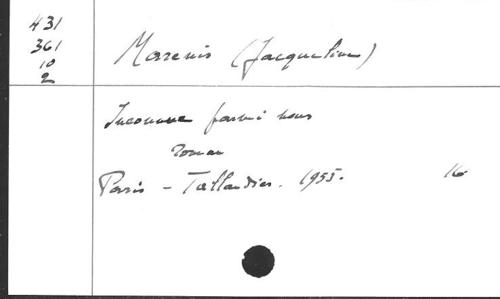 431
361
10
2
Marenis (Jacqueline)
Inconnue parmi nous
roman
Paris - Tallandier. 1955. 16